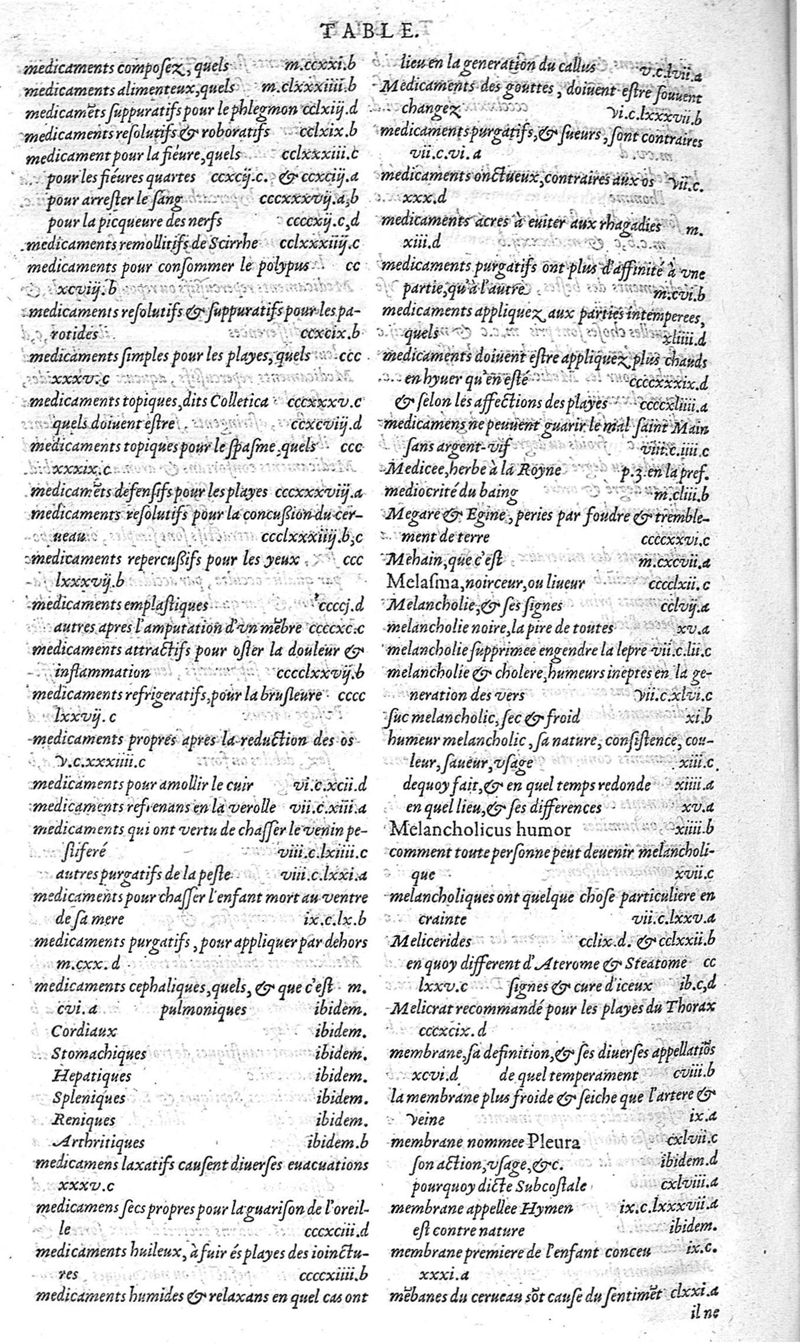 TABLE.
medicaments composez, quels m.ccxxi.b
medicaments alimenteux, quels m.clxxxiiii.b
medicamẽts suppuratifs pour le phlegmon cclxiij.d
medicaments resolutifs & roboratifs cclxix.b
medicament pour la fiéure, quels cclxxxiii.c
pour les fiéures quartes ccxcij.c. & ccxciij.a
pour arrester le sang cccxxxvij.a,b
pour la picqueure des nerfs ccccxij.c,d
medicaments remollitifs de Scirrhe cclxxxiiij.c
medicaments pour consommer le polypus cc
xcviij.b
medicaments resolutifs & suppuratifs pour les pa-
rotides ccxcix.b
medicaments simples pour les playes, quels ccc
xxxv.c
medicaments topiques, dits Colletica cccxxxv.c
quels doiuent estre ccxcviij.d
medicaments topiques pour le spasme, quels ccc
xxxix.c
medicamẽts defensifs pour les playes cccxxxviij.a
medicaments resolutifs pour la concußion du cer-
ueau ccclxxxiiij.b,c
medicaments repercußifs pour les yeux ccc
lxxxvij.b
medicaments emplastiques ccccj.d
autres apres l'amputation d'vn mẽbre ccccxc.c
medicaments attractifs pour oster la douleur &
inflammation cccclxxvij.b
medicaments refrigeratifs, pour la brusleure cccc
lxxvij.c
medicaments propres apres la reduction des os
v.c.xxxiiii.c
medicaments pour amollir le cuir vi.c.xcii.d
medicaments refrenans en la verolle vii.c.xiii.a
medicaments qui ont vertu de chasser le venin pe-
stiferé viii.c.lxiiii.c
autres purgatifs de la peste viii.c.lxxi.a
medicaments pour chasser l'enfant mort au ventre
de sa mere ix.c.lx.b
medicaments purgatifs, pour appliquer par dehors
m.cxx.d
medicaments cephaliques, quels, & que c'est m.
cvi.a pulmoniques ibidem.
Cordiaux ibidem.
Stomachiques ibidem.
Hepatiques ibidem.
Spleniques ibidem.
Reniques ibidem.
Arthritiques ibidem.b
medicamens laxatifs causent diuerses euacuations
xxxv.c
medicamens secs propres pour la guarison de l'oreil-
le cccxciii.d
medicaments huileux, à fuir és playes des ioinctu-
res ccccxiiii.b
medicaments humides & relaxans en quel cas ont
lieu en la generation du callus v.c.lvii.a
Medicaments des gouttes, doiuent estre souuent
changez vi.c.lxxxvii.b
medicaments purgatifs, & sueurs, sont contraires
vii.c.vi.a
medicaments onctueux, contraires aux os vii.c.
xxx.d
medicaments acres à euiter aux rhagadies m.
xiii.d
medicaments purgatifs ont plus d'affinité à vne
partie, qu'à l'autre m.cvi.b
medicaments appliquez aux parties intemperees,
quels xliiii.d
medicaments doiuent estre appliquez plus chauds
en hyuer qu'en esté ccccxxxix.d
& selon les affections des playes ccccxliiii.a
medicamens ne peuuent guarir le mal saint Main
sans argent-vif viii.c.iiii.c
Medicee, herbe à la Royne p.3.en la pref.
mediocrité du baing m.cliii.b
Megare & Egine, peries par foudre & tremble-
ment de terre ccccxxvi.c
Mehain, que c'est m.cxcvii.a
Melasma, noirceur, ou liueur cccclxii.c
Melancholie, & ses signes cclvij.a
melancholie noire, la pire de toutes xv.a
melancholie supprimee engendre la lepre vii.c.lii.c
melancholie & cholere, humeurs ineptes en la ge-
neration des vers vii.c.xlvi.c
suc melancholic, sec & froid xi.b
humeur melancholic, sa nature, consistence, cou-
leur, saueur, vsage xiii.c
dequoy fait, & en quel temps redonde xiiii.a
en quel lieu, & ses differences xv.a
Melancholicus humor xiiii.b
comment toute personne peut deuenir melancholi-
que xvii.c
melancholiques ont quelque chose particuliere en
crainte vii.c.lxxv.a
Melicerides cclix.d. & cclxxii.b
en quoy different d'Aterome & Steatome cc
lxxv.c signes & cure d'iceux ib.c,d
Melicrat recommandé pour les playes du Thorax
cccxcix.d
membrane, sa definition, & ses diuerses appellatiõs
xcvi.d de quel temperament cviii.b
la membrane plus froide & seiche que l'artere &
veine ix.a
membrane nommee Pleura cxlvii.c
son action, vsage, &c. ibidem.d
pourquoy dicte Subcostale cxlviii.a
membrane appellee Hymen ix.c.lxxxvii.a
est contre nature ibidem.
membrane premiere de l'enfant conceu ix.c.
xxxi.a
mẽbanes du cerueau sõt cause du sentimẽt clxxi.a
il ne